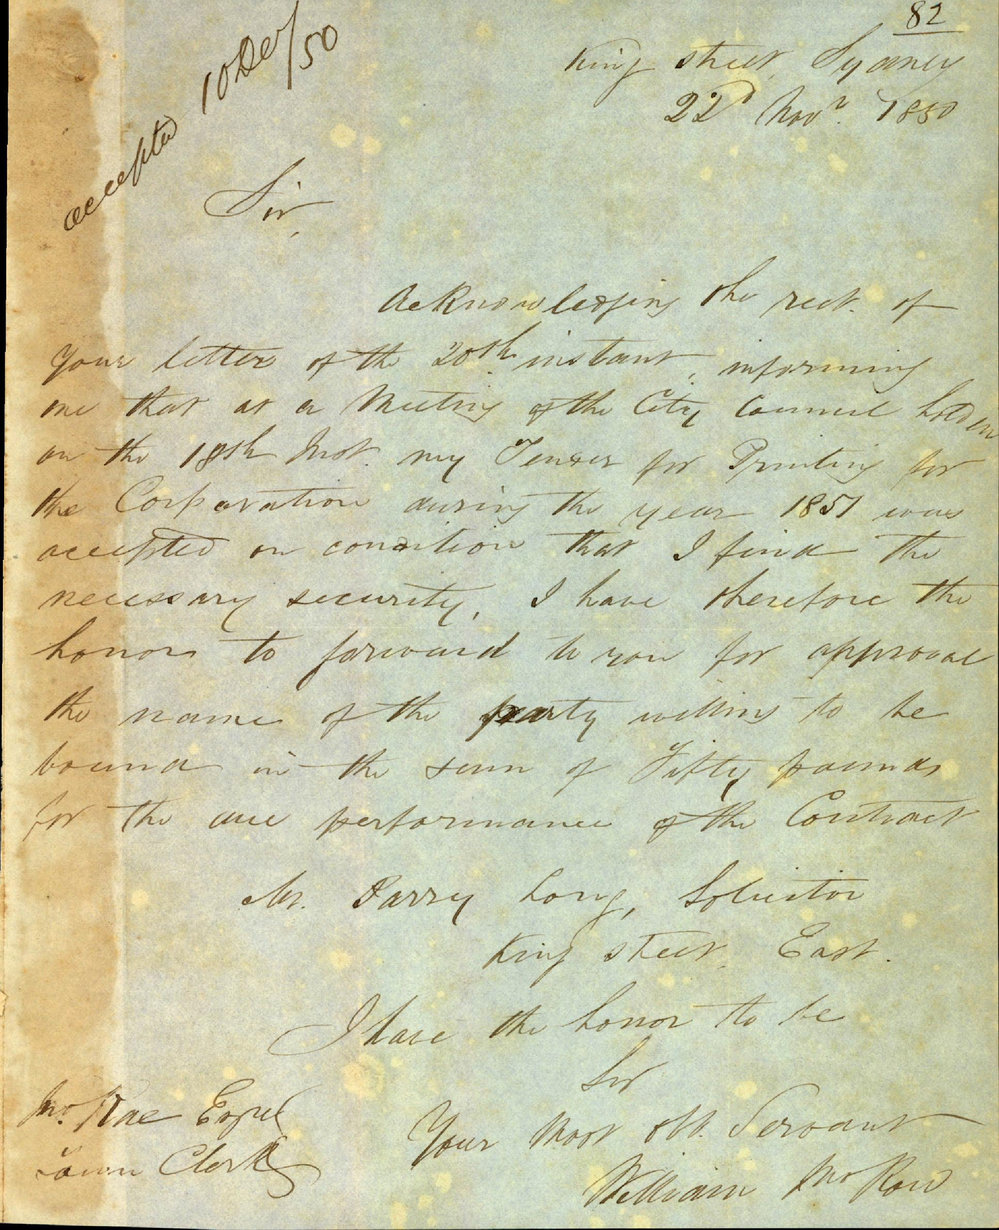 82
accepted 10 Dec/50
King street Sydney
22d Novr. 1850
Sir,
Acknowledging the rect. of
your letter of the 20th instant, informing
me that at a Meeting of the City Council holden
on the 18th Inst. my Tender for Printing for
the Corporation during the year 1851 was
accepted on condition that I find the
necessary security, I have therefore the
honor to forward to you for approval
the name of the party willing to be
bound in the sum of Fifty pounds
for the due performance of the Contract
Mr. Long, Solicitor
King street East.
I have the honor to be
Sir
Your Most Obt. Servant
William Jno Row
Jno. Rae Esqre
Town Clerk